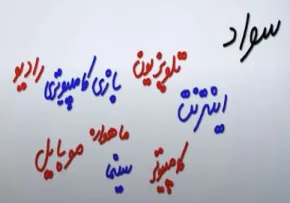 سواد
تلویزیون بازی کامپیوتری رادیو
اینترنت
ماهواره موبایل
کامپیوتر سینما